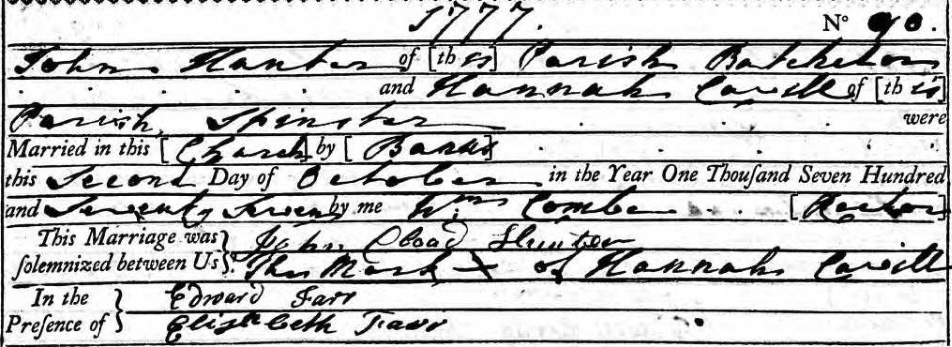 1777. No 90.
John Hunter of [this] Parish Batchelor
and Hannah Cavill of [this]
Parish, Spinster were
Married in this [Church] by [Banns]
this Second Day of October in the Year One Thouſand Seven Hundred
and Seventy Seven by me Wm Combe [Rector]
This Marriage was John Hunter
ſolemnized between Us The Mark X of Hannah Cavill
In the Edward Farr
Preſence of Elizabeth Farr